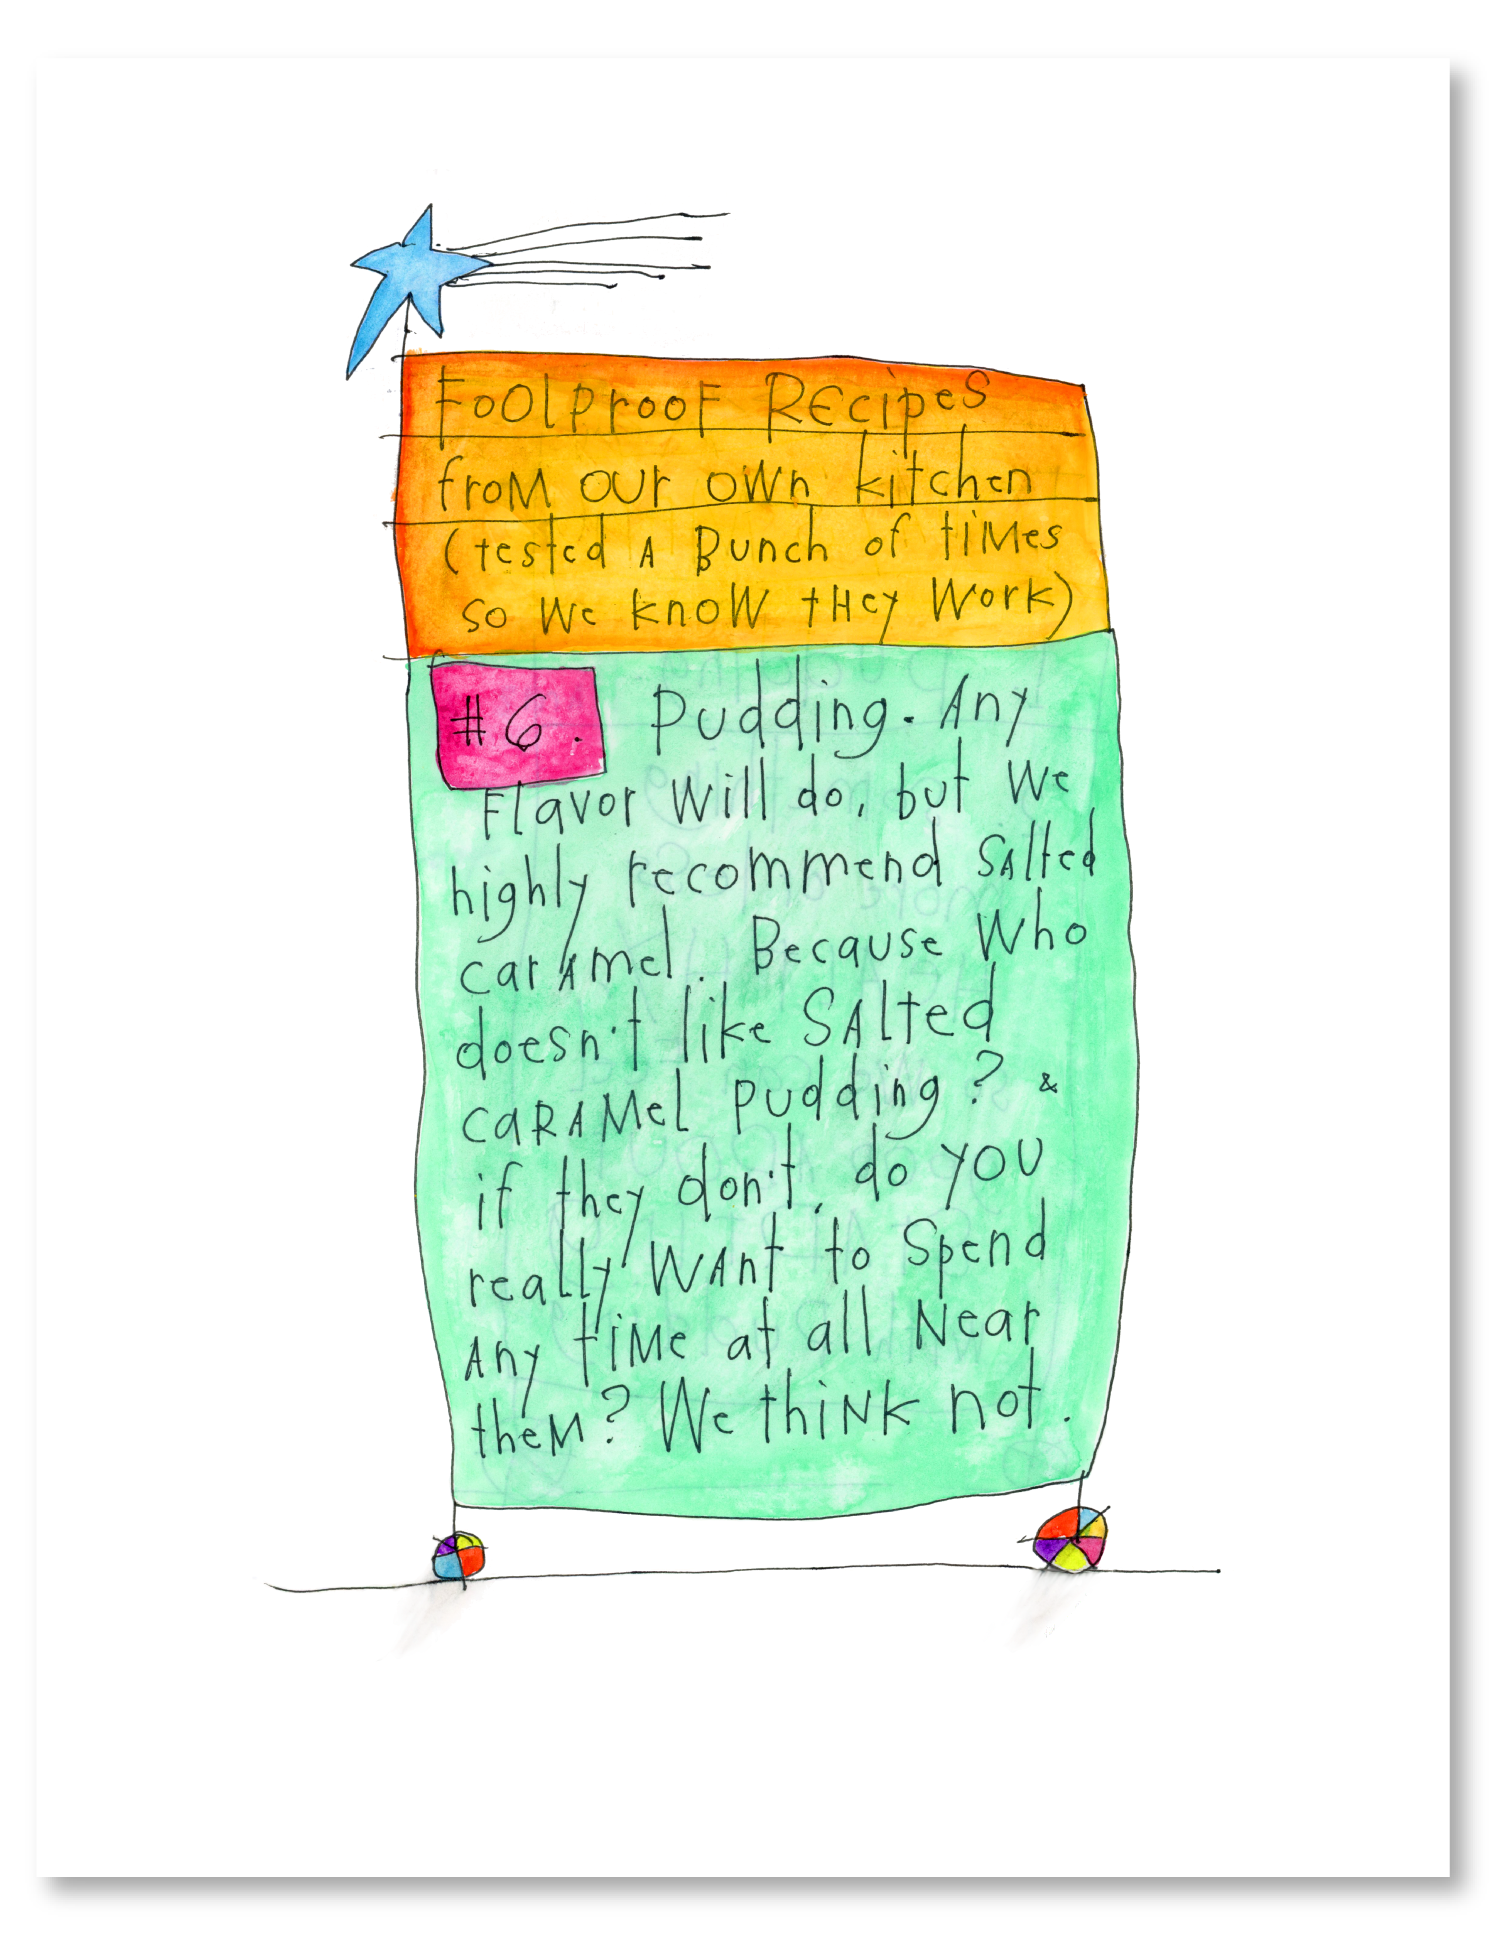 Foolproof Recipes
from our own kitchen
(tested a bunch of times
so we know they work)
#6. Pudding. Any
flavor will do, but we
highly recommend salted
caramel. Because who
doesn't like salted
caramel pudding? &
if they don't, do you
really want to spend
any time at all near
them? We think not.